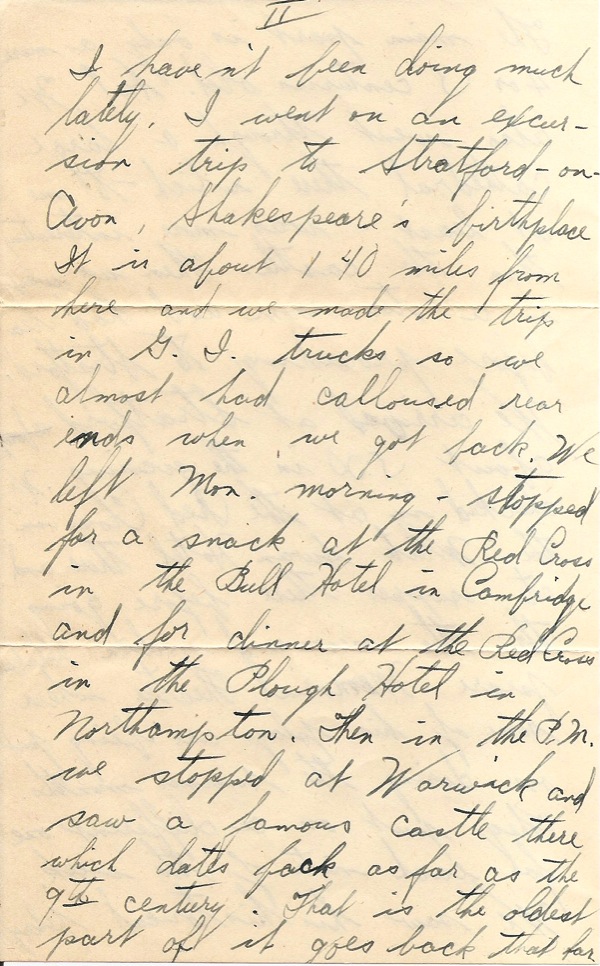 II
I haven't been doing much
lately. I went on an excur-
sion trip to Stratford-on-
Avon, Shakespeare's birthplace
It is about 140 miles from
here and we made the trip
in G. I. trucks so we
almost had calloused rear
ends when we got back. We
left Mon. morning - stopped
for a snack at the Red Cross
in the Bull Hotel in Cambridge
and for dinner at the Red Cross
in the Plough Hotel in
Northampton. Then in the P.M.
we stopped at Warwick and
saw a famous castle there
which dates back as far as the
9th century. That is the oldest
part of it goes back that far